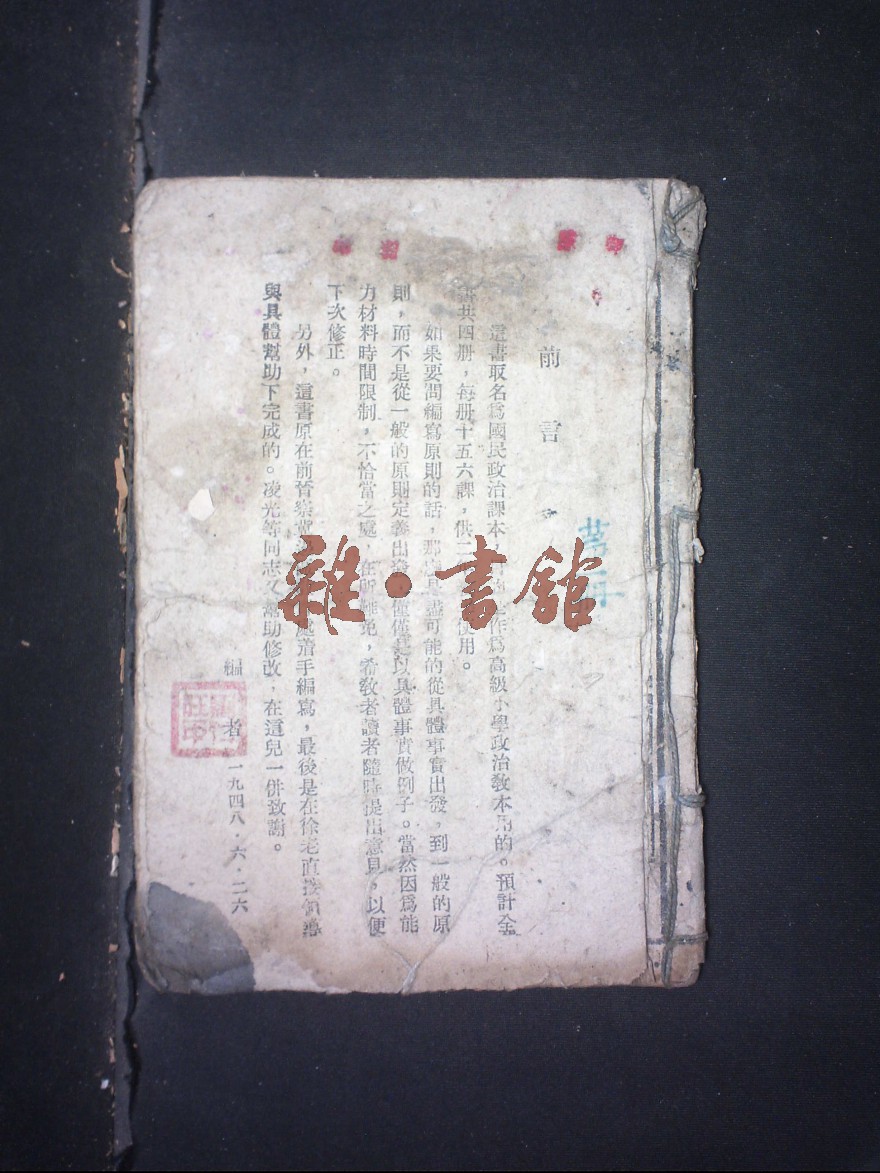 前言
這書取名爲國民政治課本,作爲高級小學政治教本用的。預計全
書共四册,每册十五六課,供二使用。
如果要問編寫原則的話,那就是盡可能的從具體事實出發,到一般的原
則,而不是從一般的原則定義出發,僅僅是以具體事實做例子。當然因爲能
力材料時間限制,不恰當之處,在所難免,希教者讀者隨時提出意見,以便
下次修正。
另外,這書原在前晉察冀處着手編寫,最後是在徐老直接領導
與具體幫助下完成的。凌光等同志又幫助修改,在這兒一併致謝。
編者 一九四八·六·二六
雜·書館